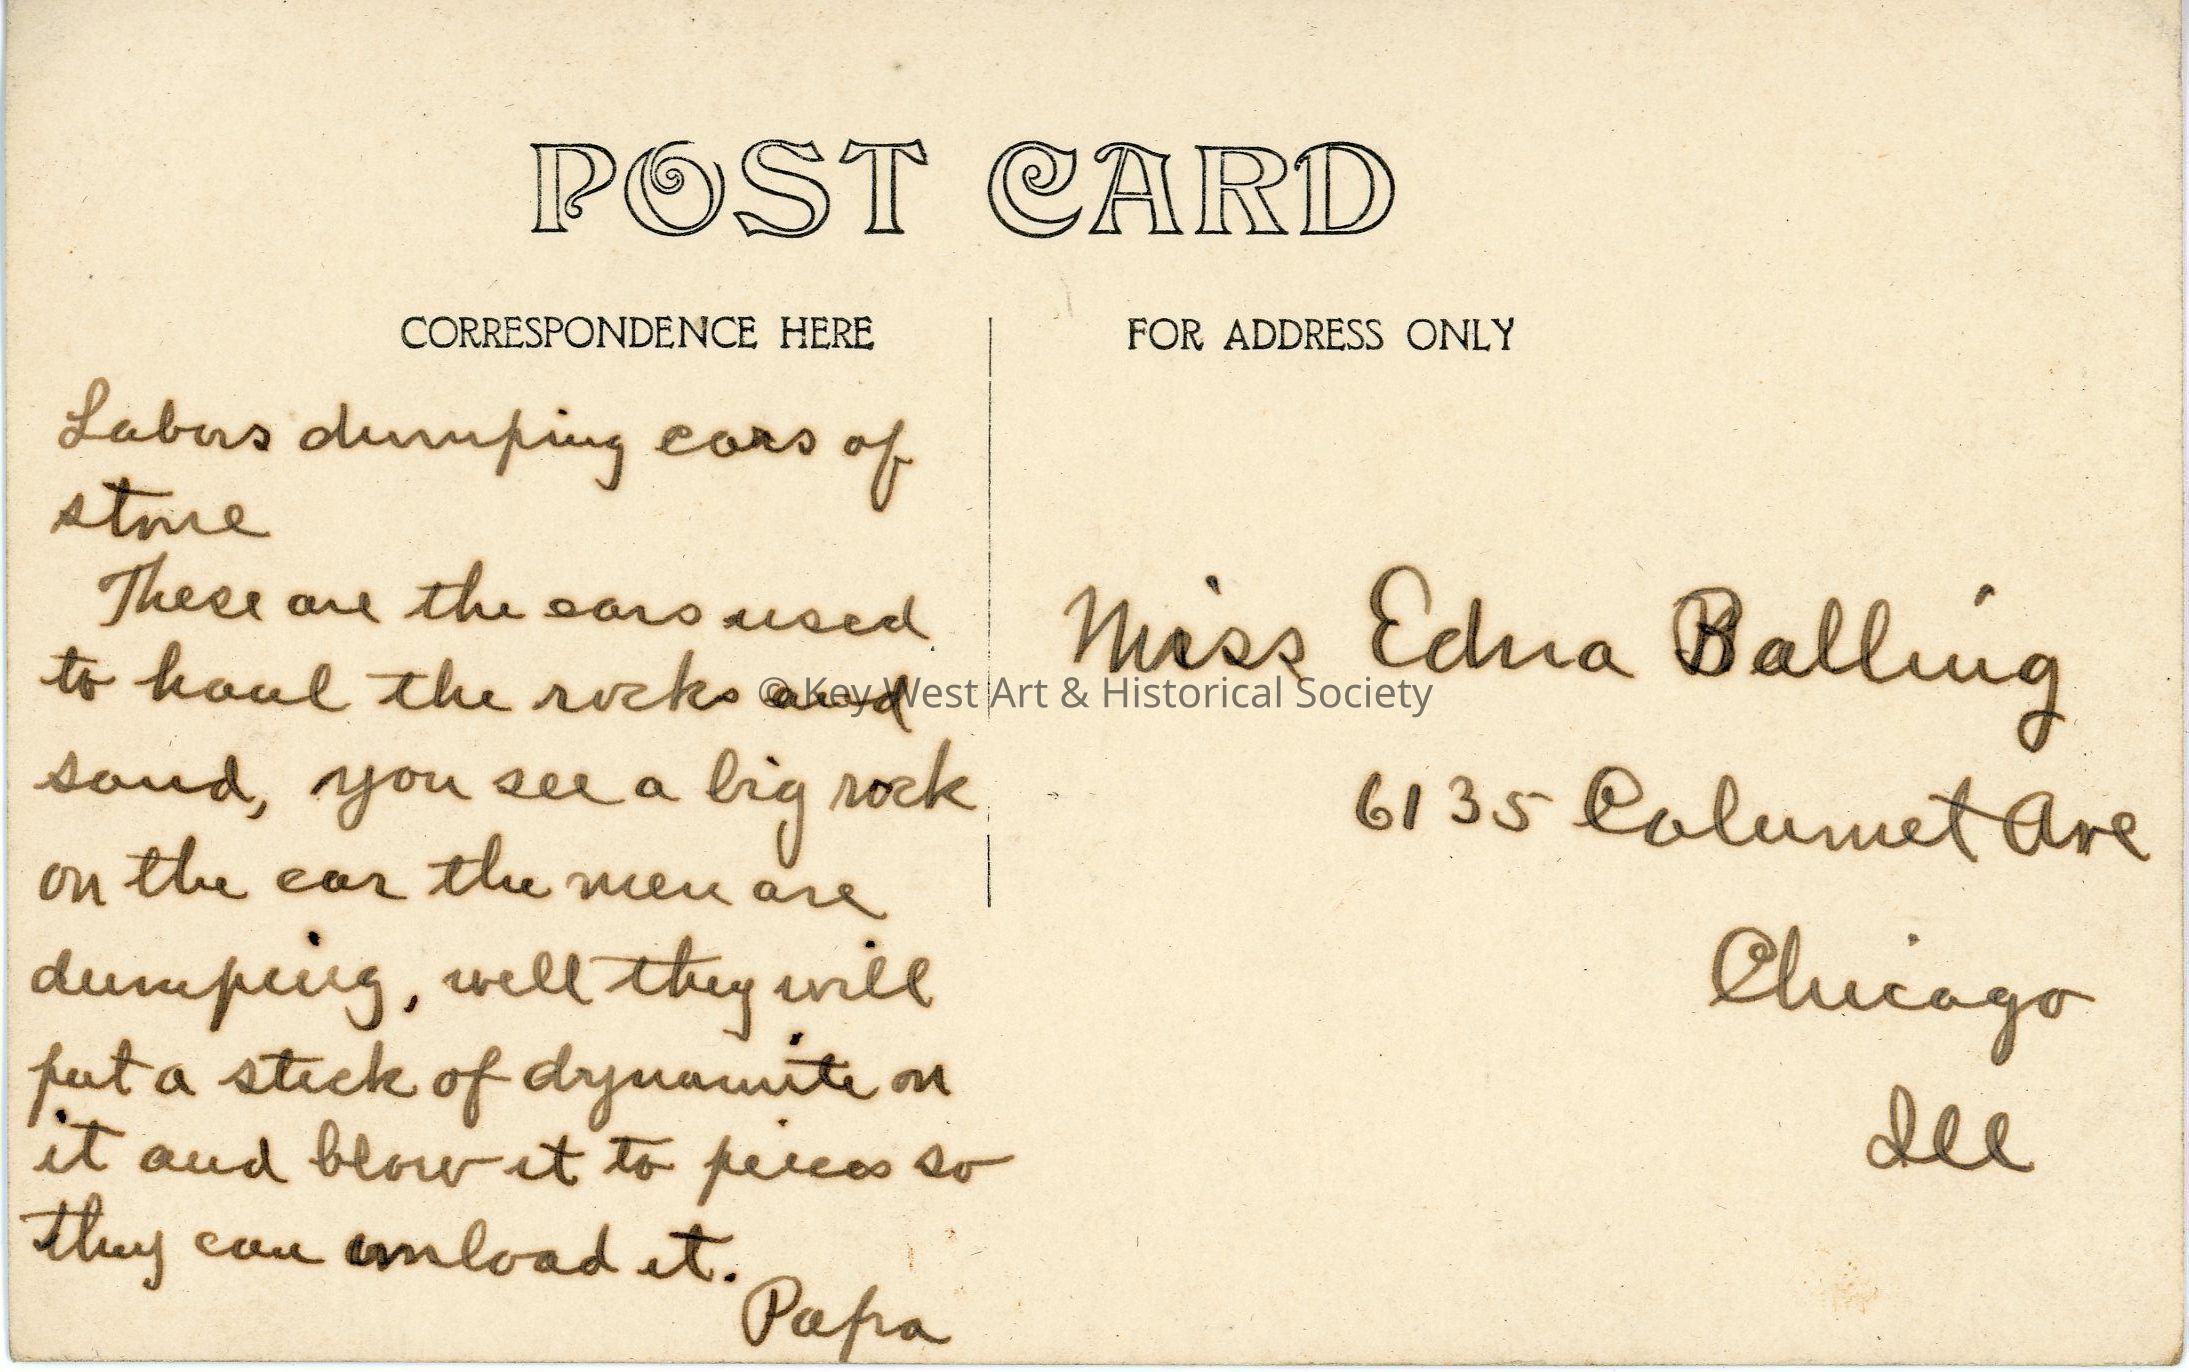 POST CARD
CORRESPONDENCE HERE
FOR ADDRESS ONLY
Labors dumping cars of
stone
These are the cars used
to haul the rocks and
sand, you see a big rock
on the car the men are
dumping, well they will
put a stick of dynamite on
it and blow it to peices so
they can unload it.
Papa
Miss Edna Balling
6135 Calumet Ave
Chicago
Ill
© Key West Art & Historical Society